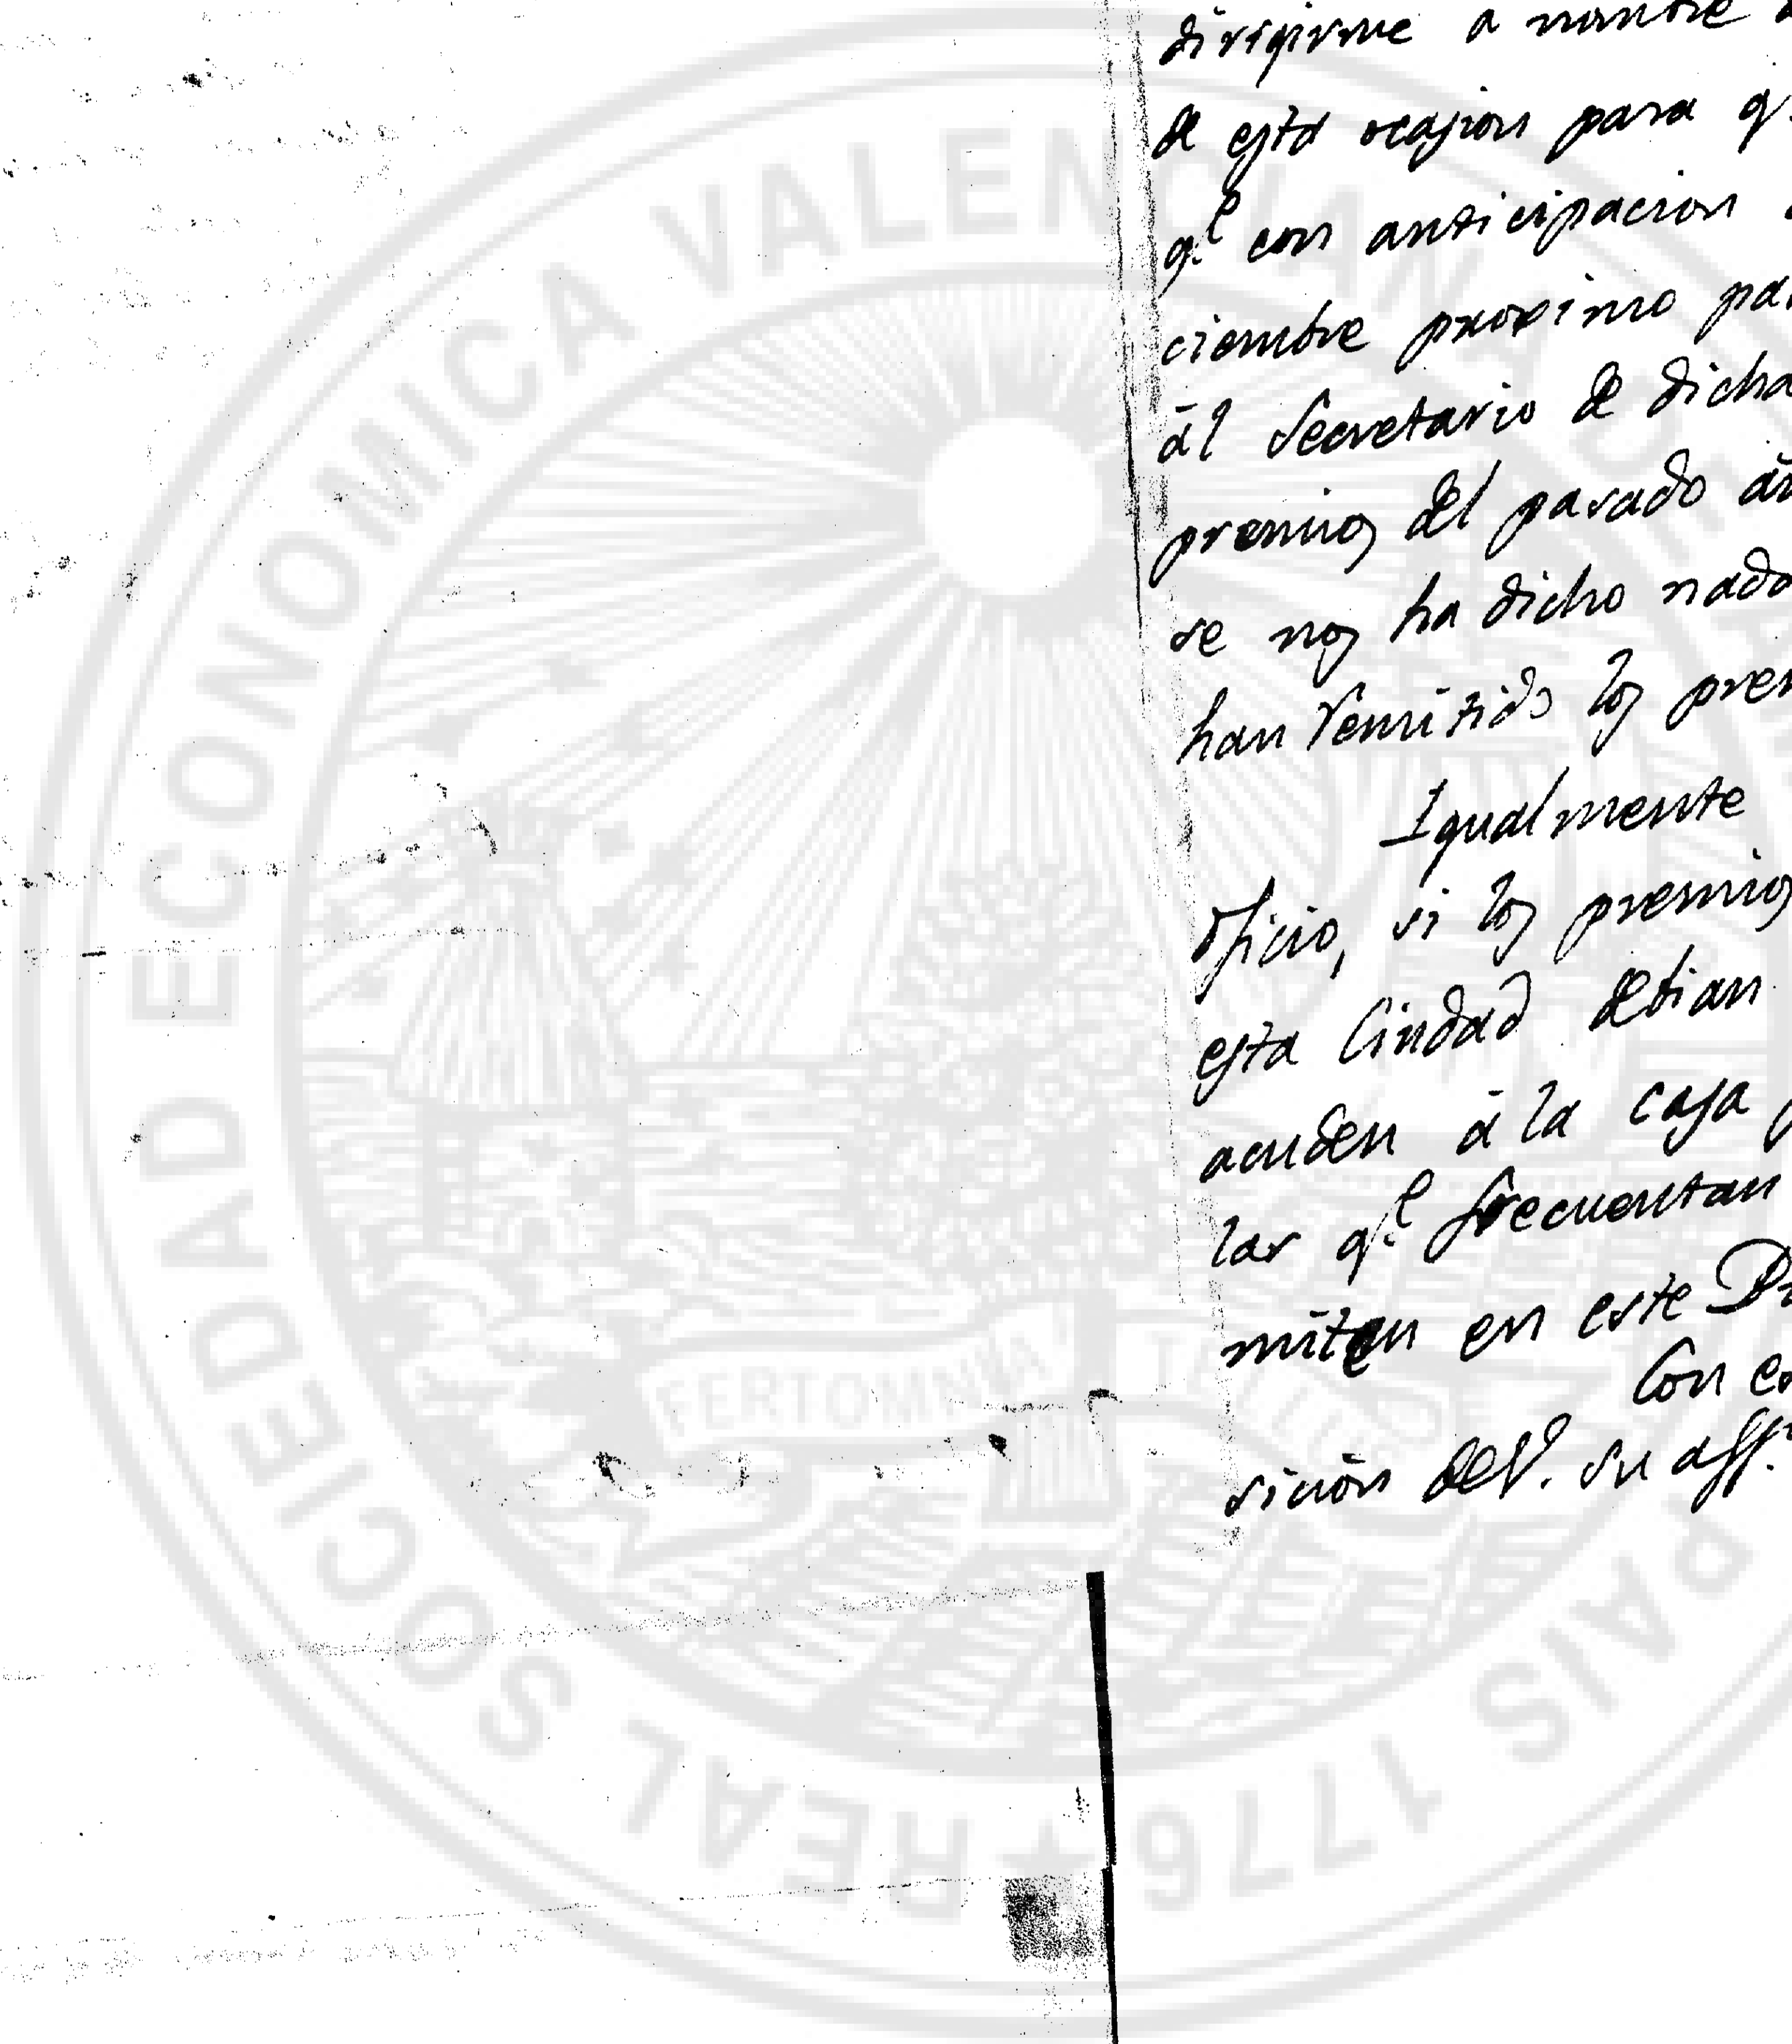 dirigirme a nombre
de esta ocasion para q.
q.e con anticipacion
ciembre proximo pa
ál Secretario de dicha
premios del pasado
se nos ha dicho nada
han remitido los pre
Igualmente
oficio, si los premios
esta Ciudad debian
acuden á la casa
lar q.e frecuentan
miten en este
Con
sición de V. su aff.
REAL SOCIEDAD ECONOMICA VALENCIANA
PAIS 1776